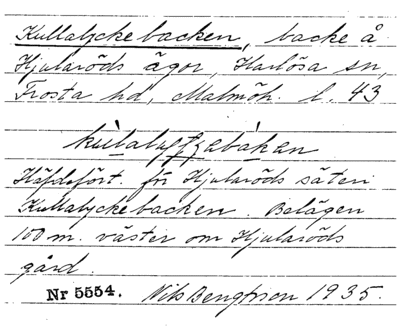 Kullalyckebacken, backe å
Hjularöds ägor, Harlösa sn,
Frosta hd, Malmöh. l. 43
Häfdefört. för Hjularöds säteri
Kullalyckebacken. Belägen
100 m. väster om Hjularöds
gård.
Nr 5554. Nils Bengtsson 1935.